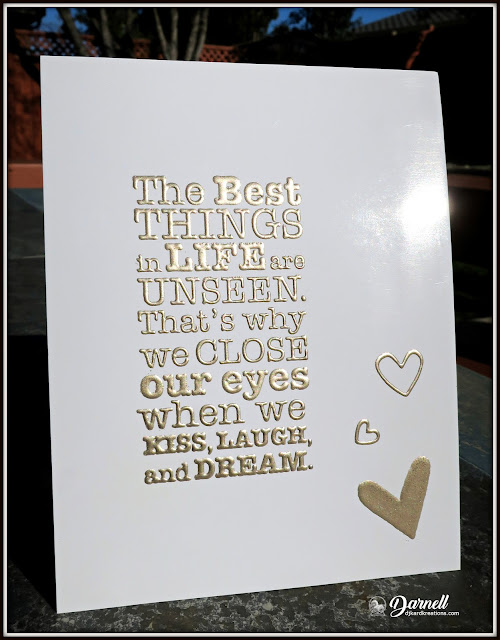 The Best
THINGS
in LIFE are
UNSEEN.
That's why
we CLOSE
our eyes
when we
KISS, LAUGH,
and DREAM.
Darnell
djkardkreations.com